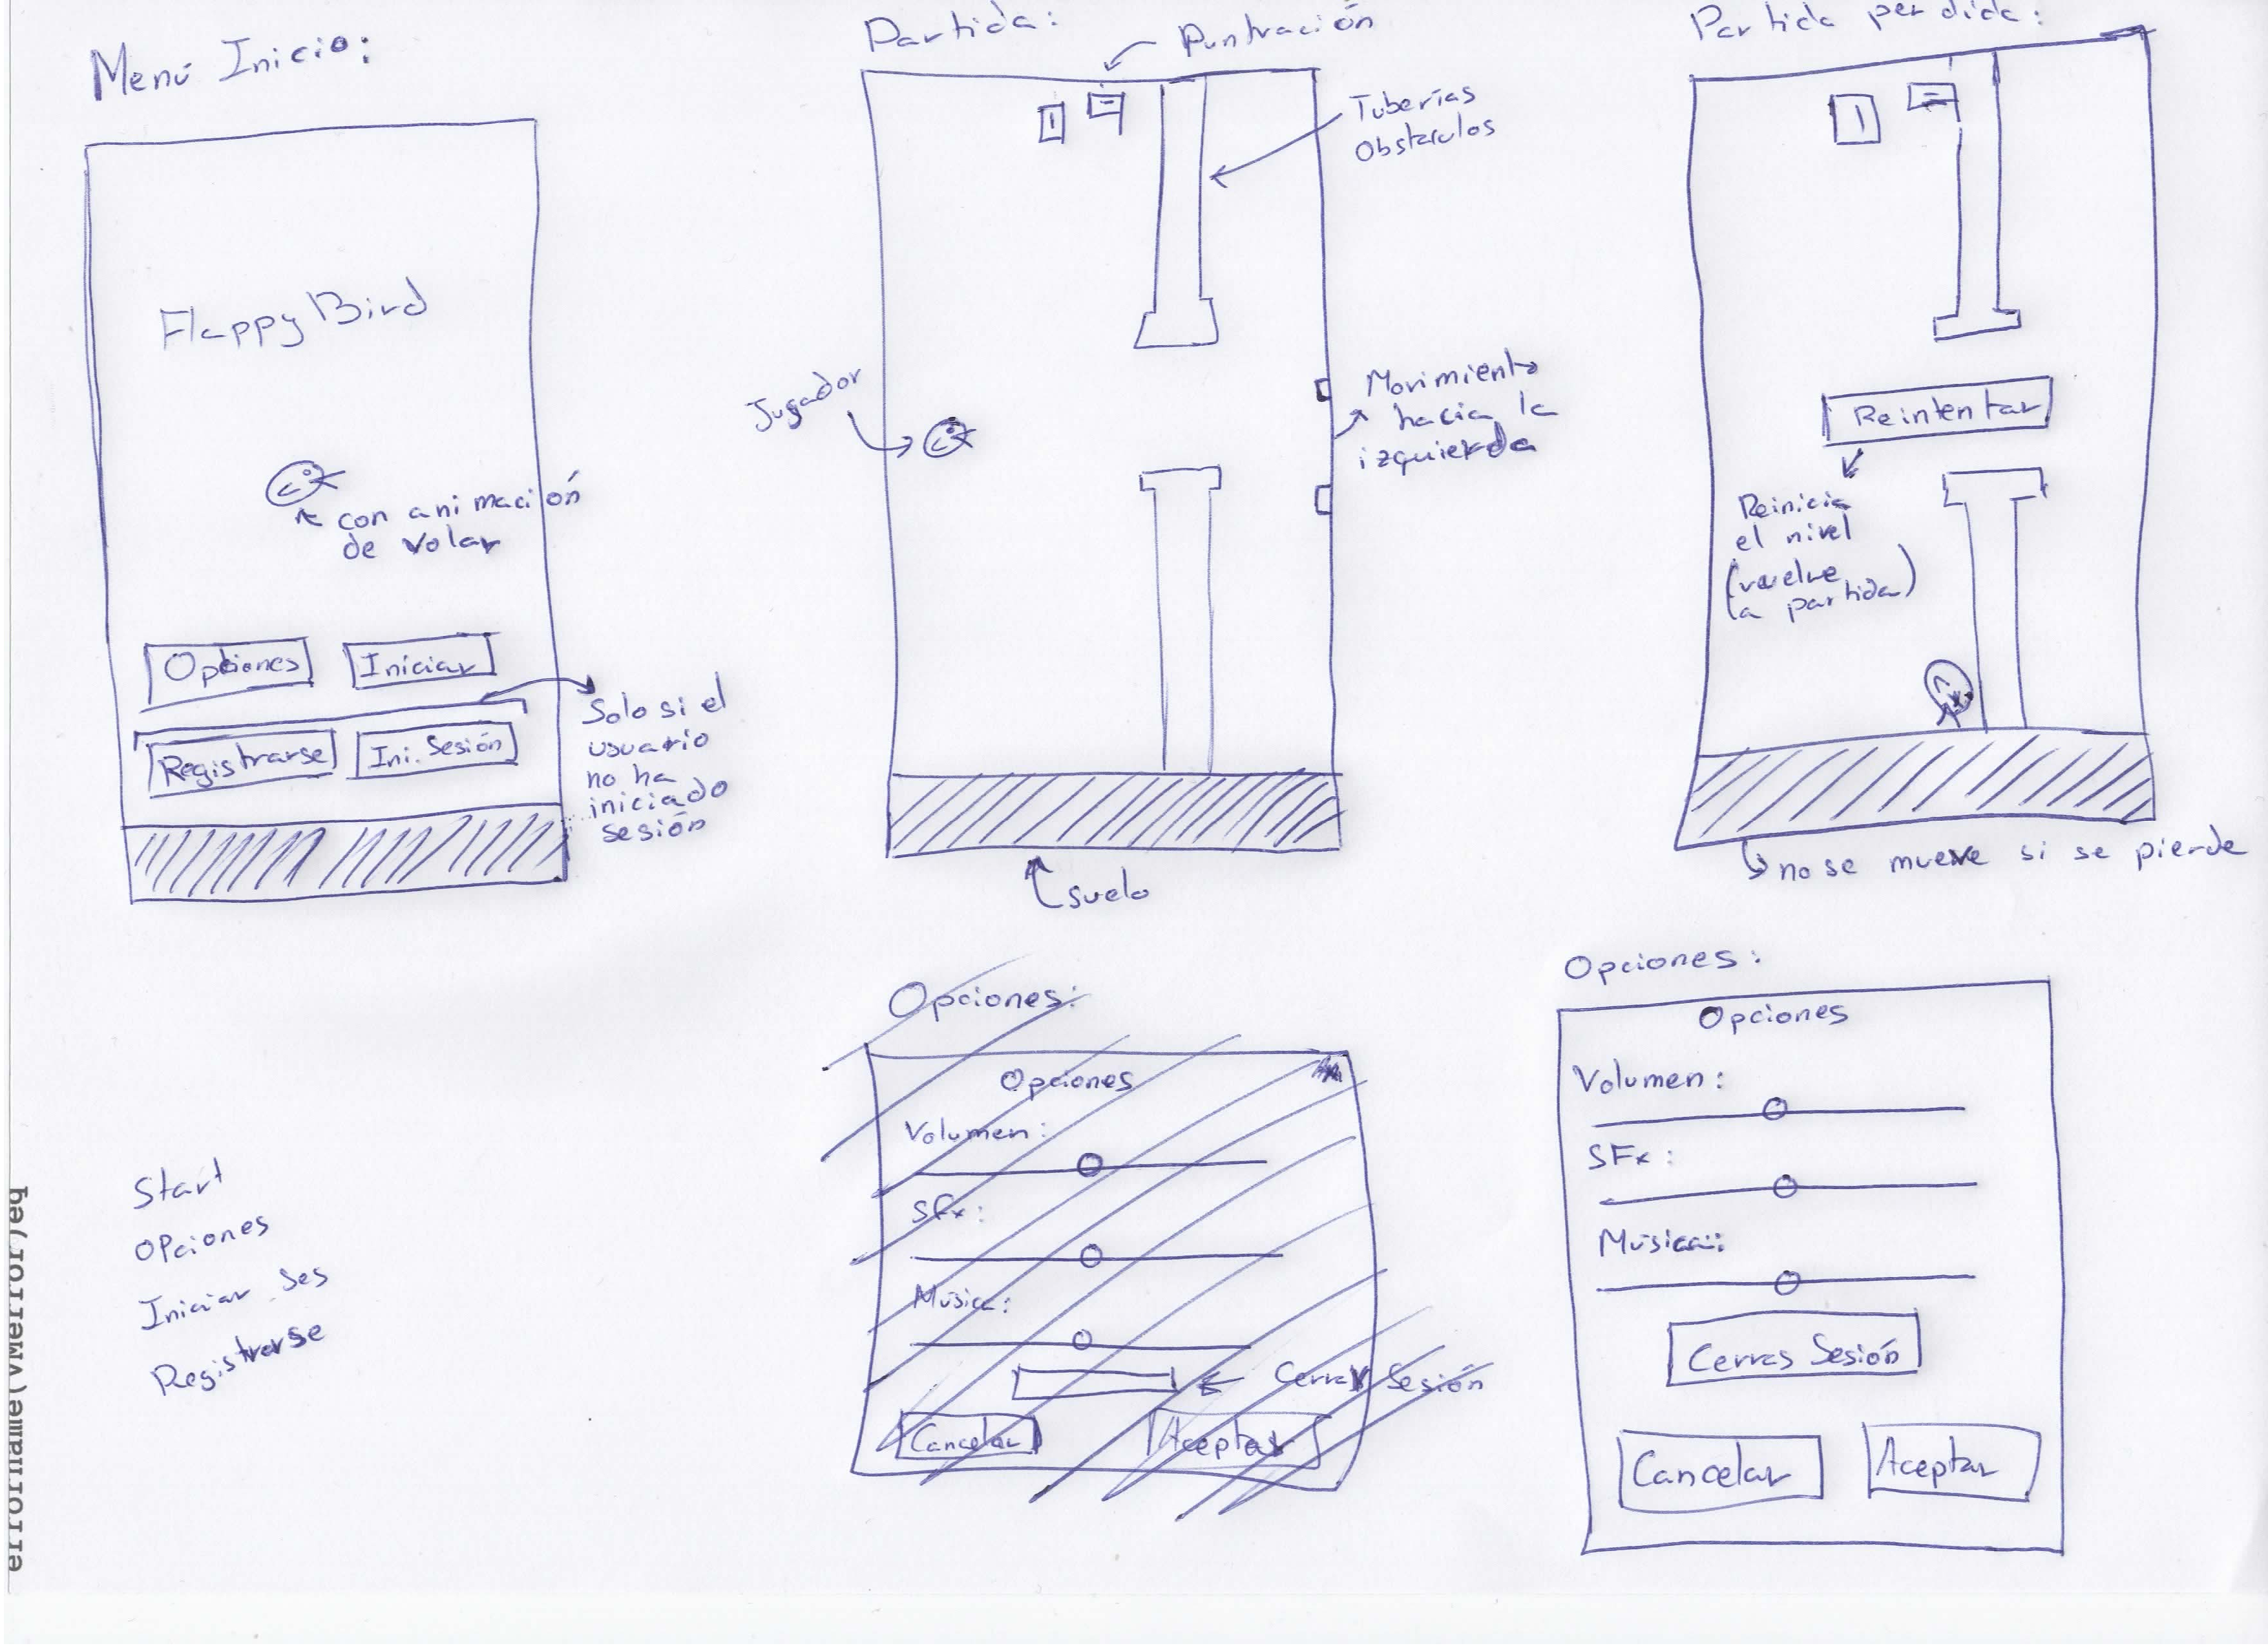 Menú Inicio:
FlappyBird
con animación
de volar
Opciones
Iniciar
Registrarse
Ini. Sesión
Solo si el
usuario
no ha
iniciado
sesión
Partida:
Puntración
Tuberías
Obstaculos
Jugador
Movimiento
hacia la
izquierda
suelo
Partida perdida:
Reintentar
Reinicia
el nivel
(vuelve
a partida)
no se mueve si se pierde
Start
Opciones
Iniciar ses
Registrarse
Opciones:
Opciones
Volumen:
SFx:
Música:
Cerrar Sesión
Cancelar
Aceptar
Opciones:
Opciones
Volumen:
SFx:
Música:
Cerras Sesión
Cancelar
Aceptar
errorname(VMerror)eg